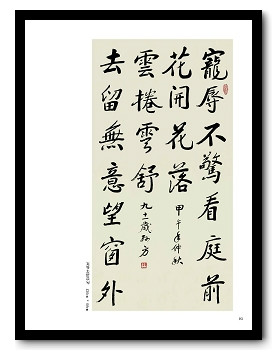 寵辱不驚看庭前
花開花落
甲午年仲秋
雲捲雲舒
九十一歲
去留無意望窗外